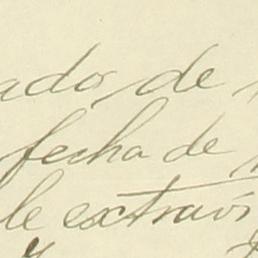 ado, de
fecha de
le extravi
y